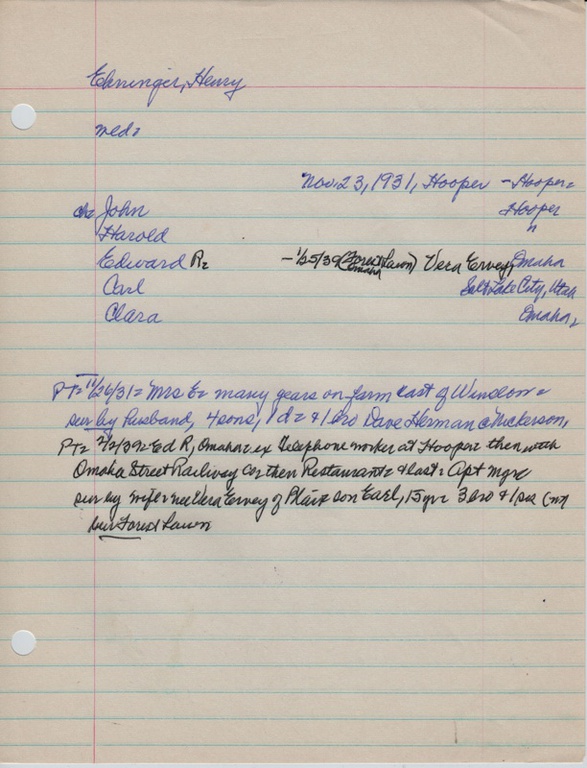 Ehninger, Henry
med=
Nov. 23, 1931, Hooper - Hooper=
ch= John Hooper
Harold "
Edward R= - 1/25/39 (Forest Lawn) Omaha Vera Ervey, Omaha
Carl Salt Lake City, Utah
Clara Omaha=
PT= 11/26/31= Mrs E= many years on farm east of Winslow=
sur by husband, 4 sons, 1 d= & 1 bro Dave Herman @ Nickerson,
PT= 2/2/39= Ed R, Omaha= ex Telephone worker at Hooper= then with
Omaha Street Railway Co= then Restaurant= & last= Apt mgr
sur by wife= nee Vera Ervey of Blair= son Earl, 15 yr= 3 bro & 1 sis
bur Forest Lawn